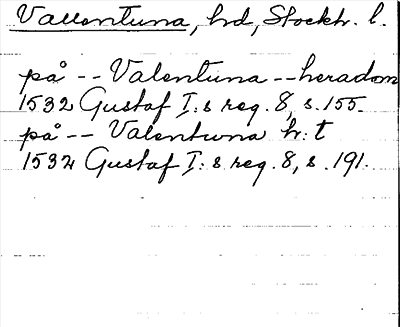 Vallentuna, hrd, Stockh. l.
på -- Valentuna -- heradom
1532 Gustaf I:s reg. 8, s. 155.
på -- Valentwna hr:t
1532 Gustaf I:s reg. 8, s. 191.